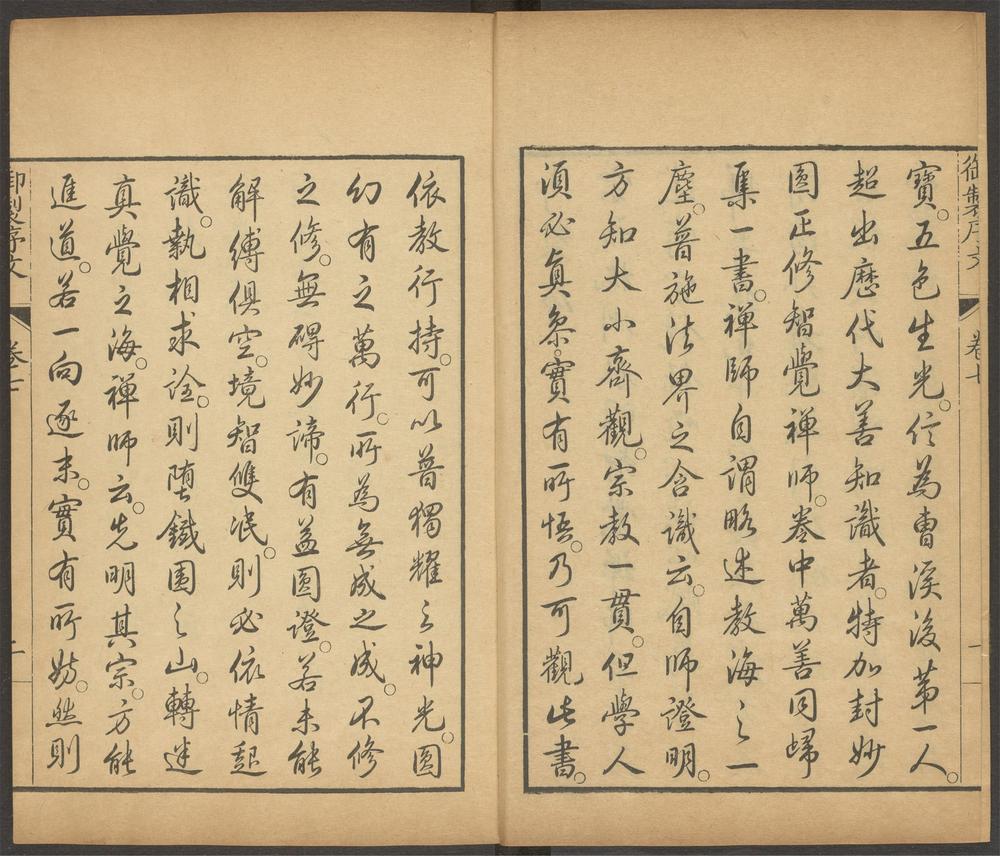 御製序文 卷七 一
寶。五色生光。信為曹溪後第一人。
超出歷代大善知識者。特加封妙
圓正修智覺禪師。卷中萬善同歸
集一書。禪師自謂略述教海之一
塵。普施法界之含識云。自師證明。
方知大小齊觀。宗教一貫。但學人
須必真參。實有所悟。乃可觀此書。
依教行持。可以普獨耀之神光。圓
幻有之萬行。所為無成之成。不修
之修。無碍妙諦。有益圓證。若未能
解縛俱空。境智雙泯。則必依情起
識。執相求詮。則墮鐵圍之山。轉迷
真覺之海。禪師云。先明其宗。方能
進道。若一向逐末。實有所妨。然則
御製序文 卷七 二